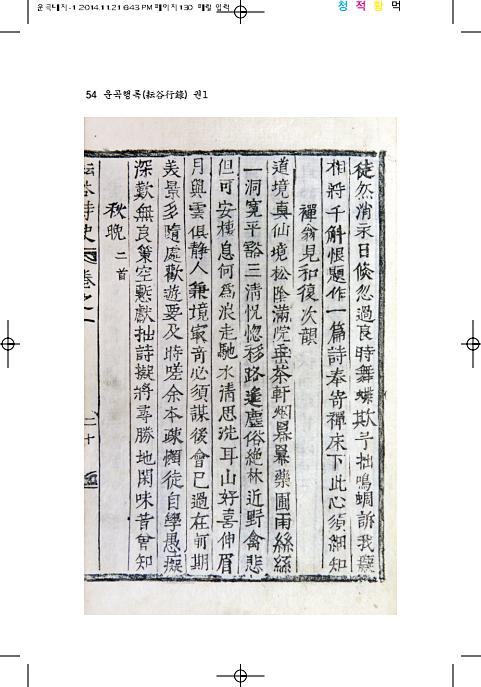 운곡내지-1 2014.11.21 6:43 PM 페이지130 매립 입력
청 적 황 먹
54 운곡행록(耘谷行錄) 권1
徒然消永日倏忽過良時舞蝶欺予拙鳴蜩訴我癡
相將千斛恨題作一篇詩奉寄禪床下此心須細知
禪翁見和復次韻
道境眞仙境松陰滿院垂茶軒烟羃羃藥圃雨絲絲
一洞寬平豁三淸恍惚移路遙塵俗絶林近野禽悲
但可安棲息何爲浪走馳水淸思洗耳山好喜伸眉
月與雲俱靜人兼境最奇心須謀後會已過在前期
美景多隨處歡遊要及時嗟余本疎懶徒自學愚癡
深歎無良策空慙獻拙詩擬將尋勝地閑味昔曾知
秋晩 二首
耘谷詩史 卷之一 二十